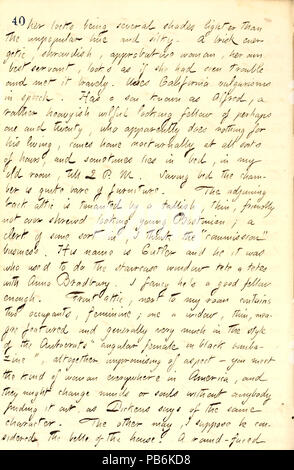 40
her locks being several shades lighter than
the unpopular hue and silky. A brisk ener-
getic, shrewdish, approbative woman, her own
best servant, looks as if she had seen trouble
and met it bravely. Uses California vulgarisms
in speech. Has a son known as Alfred, a
rather heavyish milfid looking fellow of perhaps
one and twenty, who apparently does nothing for
his living, comes home nocturnally at all sorts
of hours and sometimes lies in bed, in my
old room, till 2 P.M. Saving bed the cham-
ber is quite bare of furniture. The adjoining
back attic is tenanted by a tallish, thin, friendly
not over shrewd looking young Bostonian; a
clerk of some sort in, I think, the "commission"
business. His name is and he it was
who used to do the staircase window tete a tetes
with Anna Bradbury. I fancy he's a good fellow
enough. Front attic, next to my room contains
two occupants, feminine; one a widow, thin, mea-
gre featured and generally very much in the style
of the "angular female in black bomba-
zine", altogether unpromising of aspect - you meet
the kind of woman everywhere in America, and
they might change minds or souls without anybody
finding it out, as Dickens says of the same
character. The other may, I suppose be con-
sidered the belle of the house. A round-faced